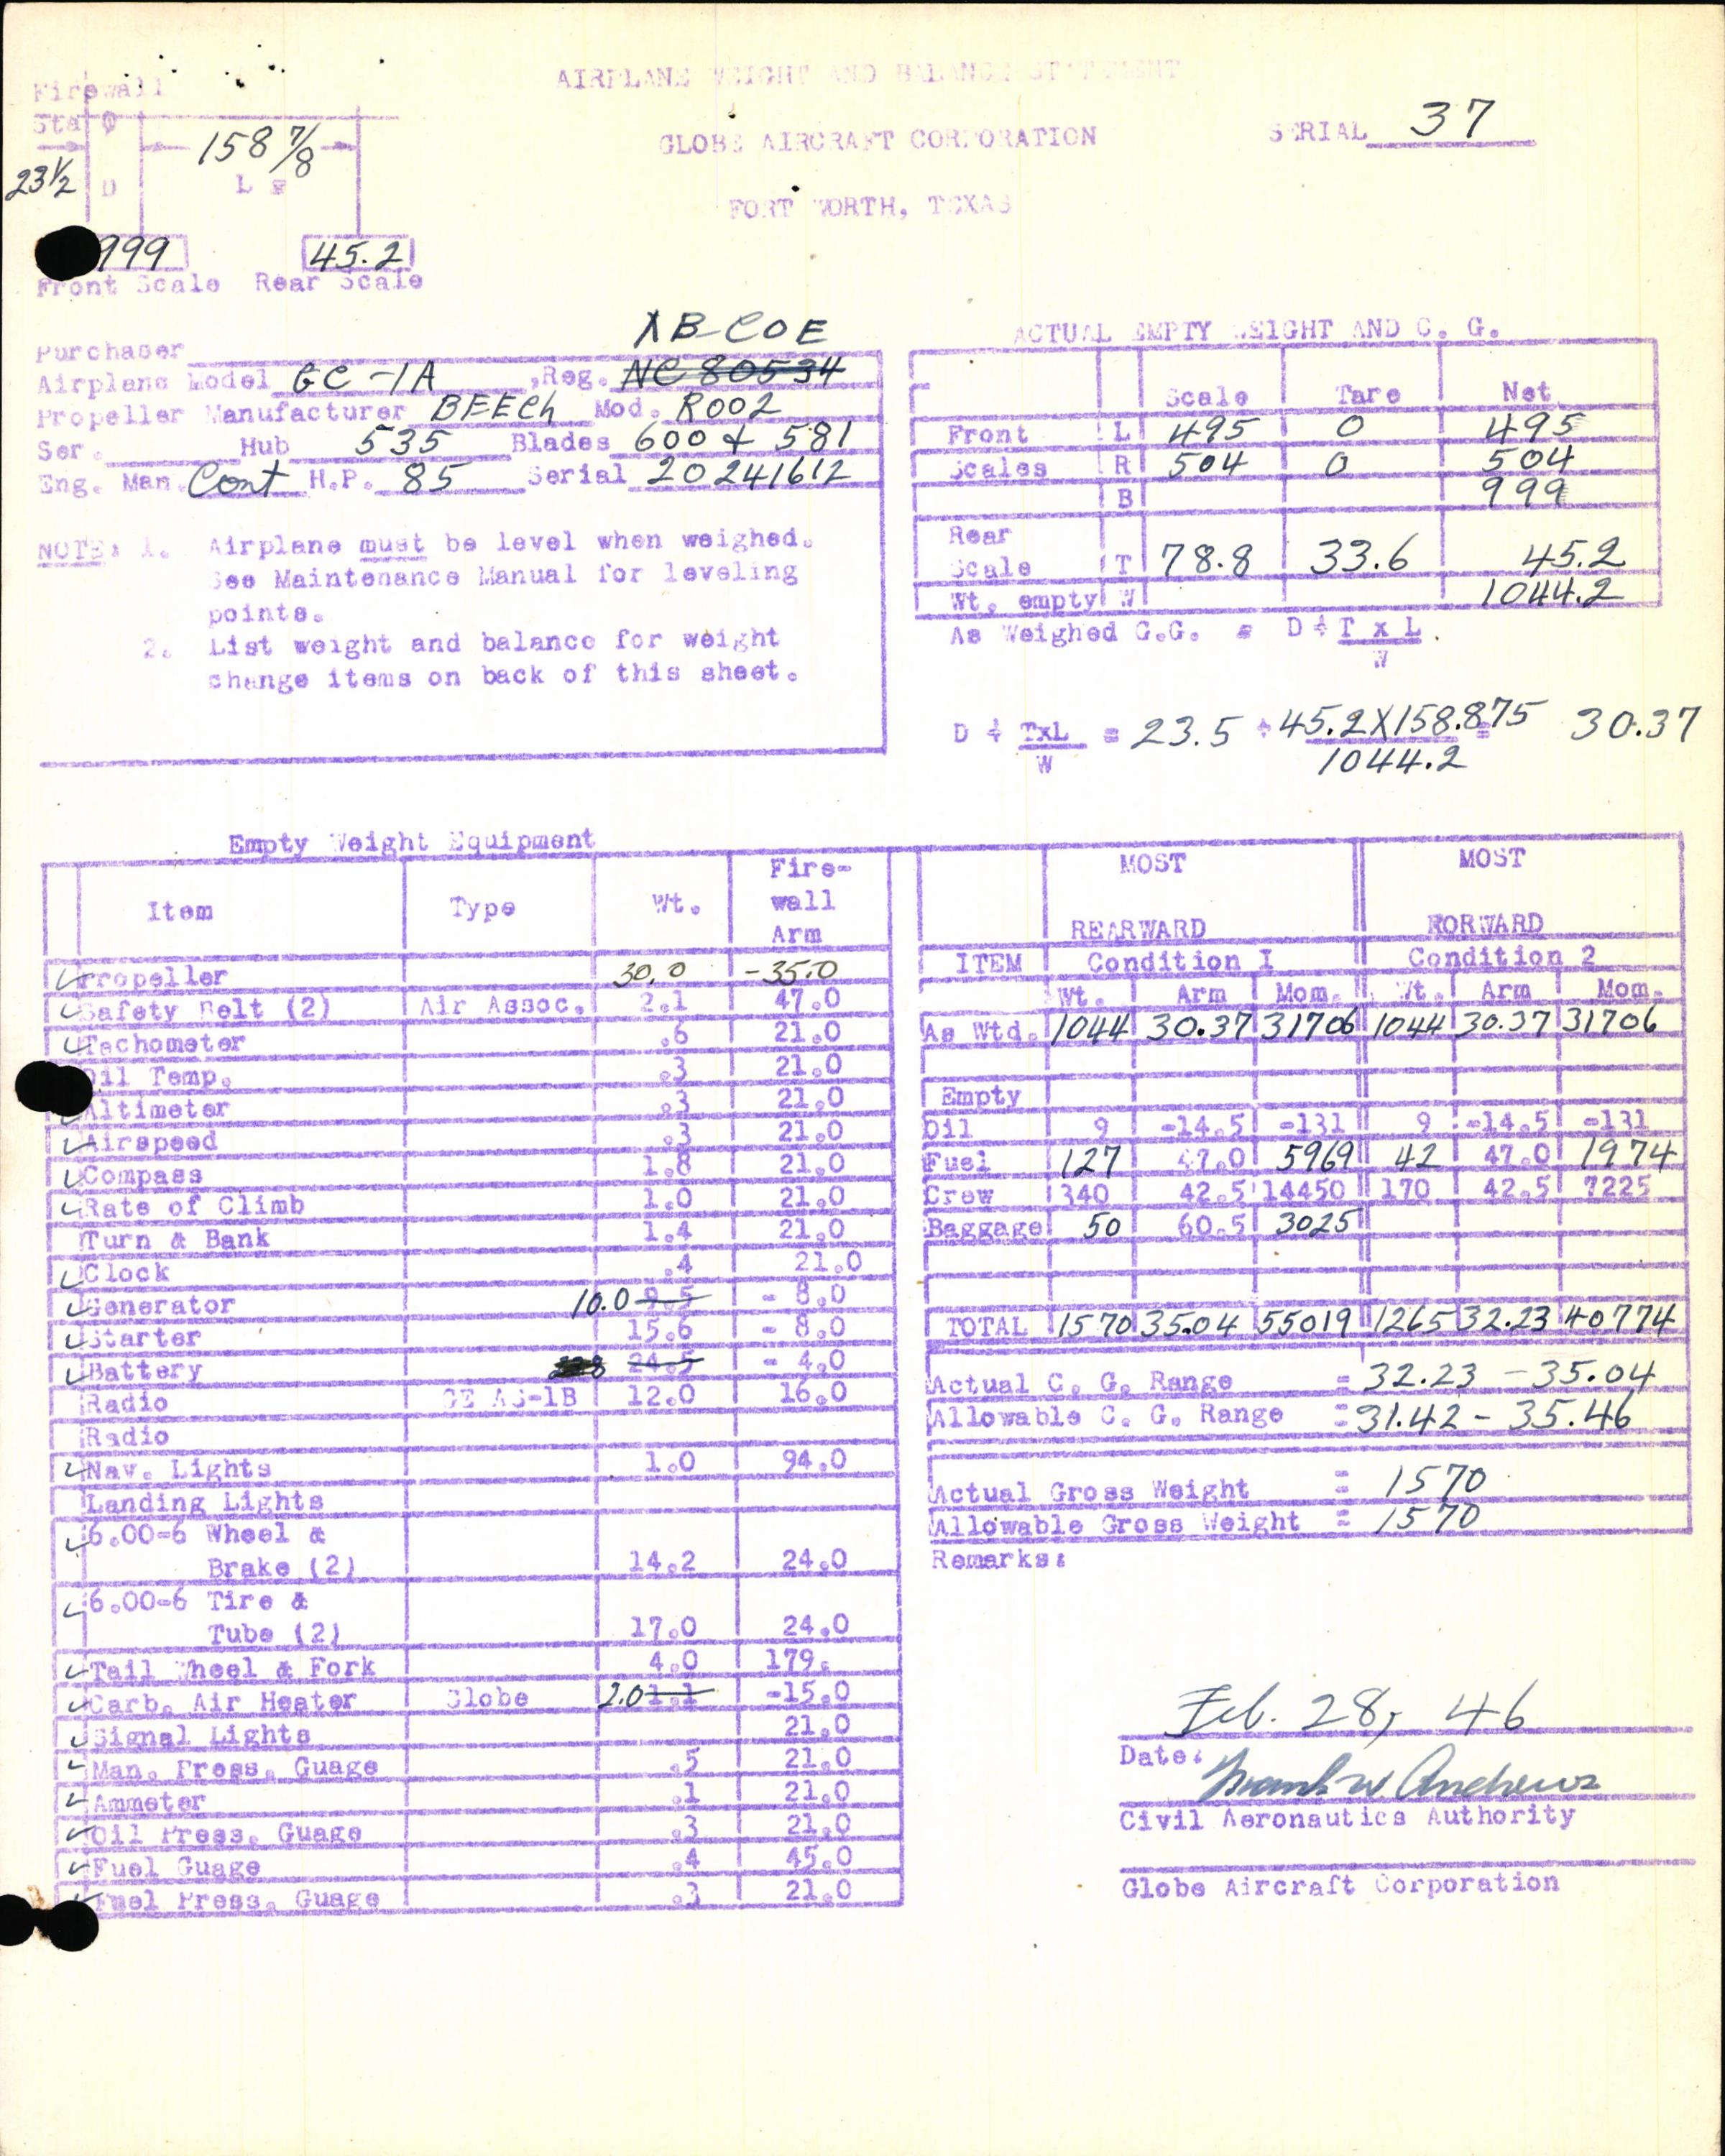 AIRPLANE WEIGHT AND BALANCE STATEMENT
GLOBE AIRCRAFT CORPORATION
FORT WORTH, TEXAS
SERIAL 37
Firewall
Sta 0
158 7/8
23 1/2 D L =
999 45.2
Front Scale Rear Scale
XB-COE
Purchaser
Airplane Model GC-1A , Reg. NC 80534
Propeller Manufacturer BEECh Mod. R002
Ser. Hub 535 Blades 600 & 581
Eng. Man. Cont H.P. 85 Serial 20241612
NOTE: 1. Airplane must be level when weighed.
See Maintenance Manual for leveling
points.
2. List weight and balance for weight
change items on back of this sheet.
ACTUAL EMPTY WEIGHT AND C. G.
Scale Tare Net
Front L 495 0 495
Scales R 504 0 504
B 999
Rear
Scale T 78.8 33.6 45.2
Wt. empty W 1044.2
As Weighed C.G. = D + T x L
W
D + TxL = 23.5 + 45.2 X 158.875 = 30.37
W 1044.2
Empty Weight Equipment
Item Type Wt. Fire-
wall
Arm
Propeller 30.0 -35.0
Safety Belt (2) Air Assoc. 2.1 47.0
Tachometer .6 21.0
Oil Temp. .3 21.0
Altimeter .3 21.0
Airspeed .3 21.0
Compass 1.8 21.0
Rate of Climb 1.0 21.0
Turn & Bank 1.4 21.0
Clock .4 21.0
Generator 10.0 9.5 - 8.0
Starter 15.6 - 8.0
Battery 24.5 - 4.0
Radio GE AS-1B 12.0 16.0
Radio
Nav. Lights 1.0 94.0
Landing Lights
6.00-6 Wheel &
Brake (2) 14.2 24.0
6.00-6 Tire &
Tube (2) 17.0 24.0
Tail Wheel & Fork 4.0 179.
Carb. Air Heater Globe 2.0 1.1 -15.0
Signal Lights 21.0
Man. Press. Guage .5 21.0
Ammeter .1 21.0
Oil Press. Guage .3 21.0
Fuel Guage .4 45.0
Fuel Press. Guage .3 21.0
MOST MOST
REARWARD RORWARD
ITEM Condition I Condition 2
Wt. Arm Mom. Wt. Arm Mom.
As Wtd. 1044 30.37 31706 1044 30.37 31706
Empty
Oil 9 -14.5 -131 9 -14.5 -131
Fuel 127 47.0 5969 42 47.0 1974
Crew 340 42.5 14450 170 42.5 7225
Baggage 50 60.5 3025
TOTAL 1570 35.04 55019 1265 32.23 40774
Actual C. G. Range = 32.23 - 35.04
Allowable C. G. Range = 31.42 - 35.46
Actual Gross Weight = 1570
Allowable Gross Weight = 1570
Remarks:
Feb. 28, 46
Date:
Frank W Andrews
Civil Aeronautics Authority
Globe Aircraft Corporation